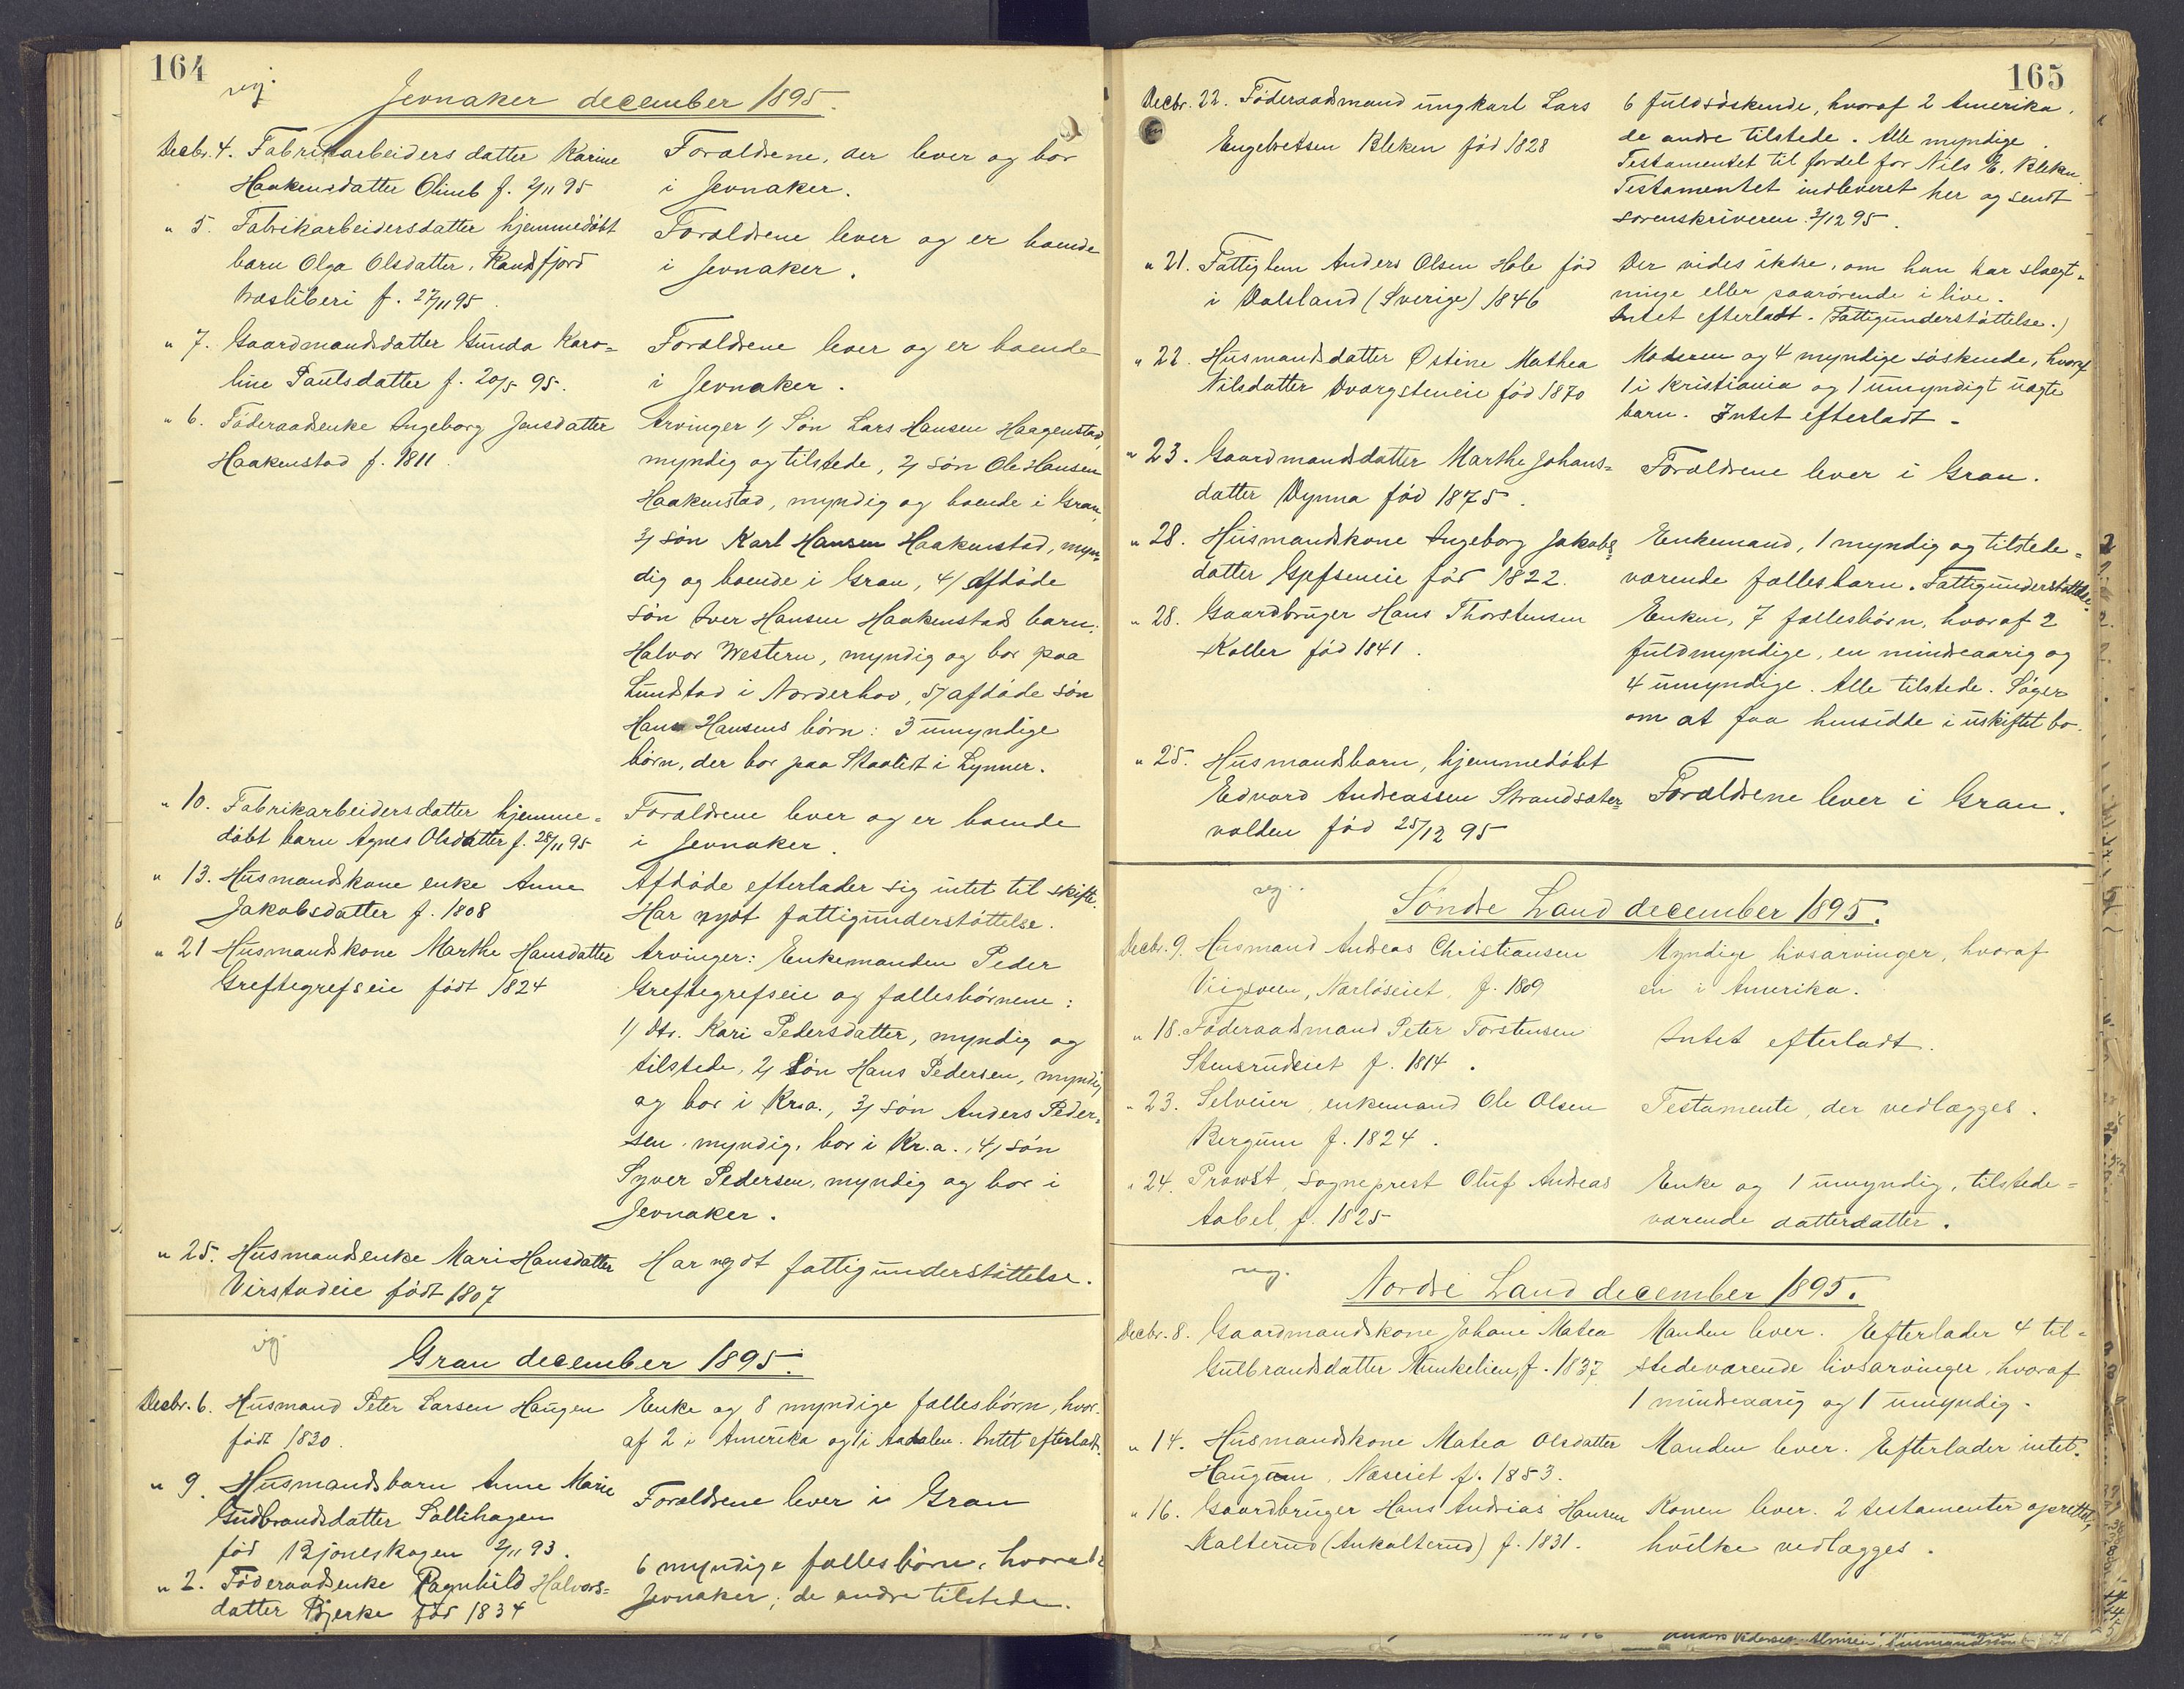 164
reg.
Jevnaker december 1895.
Decbr. 4. Fabrikarbeiders datter Karine
Haakensdatter Olimb f. 2/11 95
Forældrene, der lever og bor
i Jevnaker.
" 5. Fabrikarbeidersdatter hjemmedøbt
barn Olga Olsdatter, Randsfjord
træsliberi f. 27/11 95.
Forældrene lever og er boende
i Jevnaker.
" 7. Gaardmandsdatter Gunda Karo=
line Paulsdatter f. 20/5 95.
Forældrene lever og er boende
i Jevnaker.
" 6. Føderaadsenke Ingeborg Jensdatter
Haakenstad f. 1811.
Arvinger 1/ Søn Lars Hansen Haagenstad,
myndig og tilstede, 2/ søn Ole Hansen
Haakenstad, myndig og boende i Gran,
3/ søn Karl Hansen Haakenstad, myn=
dig og boende i Gran, 4/ Afdøde
søn Iver Hansen Haakenstads barn:
Halvor Western, myndig og bor paa
Lundstad i Norderhov, 5/ afdøde søn
Hans Hansens børn: 3 umyndige
børn, der bor paa Skaalidt i Lynner.
" 10. Fabrikarbeidersdatter hjemme=
døbt barn Agnes Olsdatter f. 28/11 95
Forældrene lever og er boende
i Jevnaker.
" 13. Husmandskone enke Anne
Jakobsdatter f. 1808
Afdøde efterlader sig intet til skifte.
Har nydt fattigunderstøttelse.
" 21 Husmandskone Marthe Hansdatter
Greftegrefseie født 1824
Arvinger: Enkemanden Peder
Greftegrefseie og fællesbørnene:
1/ dtr. Kari Pedersdatter, myndig og
tilstede, 2/ Søn Hans Pedersen, myndig
og bor i Kr.a., 3/ søn Anders Peder=
sen, myndig, bor i Kr.a., 4/ søn
Syver Pedersen, myndig og bor i
Jevnaker.
" 25. Husmandsenke Mari Hansdatter
Virstadeie født 1807
Har nydt fattigunderstøttelse.
Gran december 1895.
Decbr. 6. Husmand Peter Larsen Haugen
født 1830.
Enke og 8 myndige fællesbørn, hvor=
af 2 i Amerika og 1 i Aadalen. Intet efterladt.
" 9. Husmandsbarn Anne Marie
Gudbrandsdatter Sollihagen
fød Bjoneskogen 2/11 93.
Forældrene lever i Gran
" 2. Føderaadsenke Ragnhild Halvors=
datter Bjerke fød 1834
6 myndige fællesbørn, hvoraf
Jevnaker; de andre tilstede.
165
Decbr. 22. Føderaadsmand ungkarl Lars
Engebretsen Bleken fød 1828
6 fuldsøskende, hvoraf 2 Amerika,
de andre tilstede. Alle myndige.
Testamentet til fordel for Nils E. Bleken
Testamentet indleveret her og sendt
sorenskriveren 3/12 95.
" 21. Fattiglem Anders Olsen Hole fød
i Dalsland (Sverige) 1846
Der vides ikke, om han har slægt=
ninge eller paarørende i live.
Intet efterladt. Fattigunderstøttelse.)
" 22. Husmandsdatter Østine Mathea
Nilsdatter Dvergsteneie fød 1870
Moderen og 4 myndige søskende, hvoraf
1 i Kristiania og 1 umyndigt uægte
barn. Intet efterladt.
" 23. Gaardmandsdatter Marthe Johans=
datter Dynna fød 1875.
Forældrene lever i Gran.
" 28. Husmandskone Ingeborg Jakobs=
datter Gjefseneie fød 1822.
Enkemand, 1 myndig og tilstede=
værende fællesbarn. Fattigunderstøttelse.
" 28. Gaardbruger Hans Thorstensen
Koller fød 1841.
Enken, 7 fællesbørn, hvoraf 2
fuldmyndige, en mindreaarig og
4 umyndige. Alle tilstede. Søger
om at faa hensidde i uskiftet bo.
" 25. Husmandsbarn, hjemmedøbt
Edvard Andreassen Strandsæter=
volden fød 25/12 95
Forældrene lever i Gran.
reg.
Søndre Land december 1895.
Decbr. 9. Husmand Andreas Christiansen
Viigsveen, Nærløseiet, f. 1809
Myndige livsarvinger, hvoraf
en i Amerika.
" 18. Føderaadsmand Peter Torstensen
Stensrudeiet f. 1814.
Intet efterladt.
" 23. Selveier, enkemand Ole Olsen
Bergum f. 1824.
Testamente, der vedlægges.
" 24. Provst, sogneprest Oluf Andreas
Aabel, f. 1825
Enke og 1 umyndig, tilstede=
værende datterdatter.
reg.
Nordre Land december 1895.
Decbr. 8. Gaardmandskone Johane Matea
Gulbrandsdatter Munkelien f. 1837
Manden lever. Efterlader 4 til=
stedeværende livsarvinger, hvoraf
1 mindreaarig og 1 umyndig.
" 14. Husmandskone Matea Olsdatter
Haugum, Næseiet f. 1853.
Manden lever. Efterlader intet.
" 16. Gaardbruger Hans Andreas Hansen
Kalterud (Aukalterud) f. 1831.
Konen lever. 2 testamenter oprettet,
hvilke vedlægges.